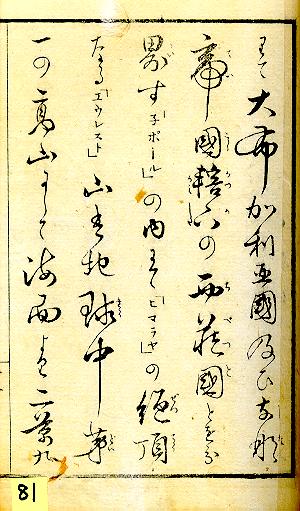 にて大布加利亜國及ひ支那
帝國轄下の西蔵國とを分
界す「子ポール」の内にて「ヒマラヤ」の絶頂
たる「エウレスト」山は地球中第
一の高山にて海面より二萬九
81